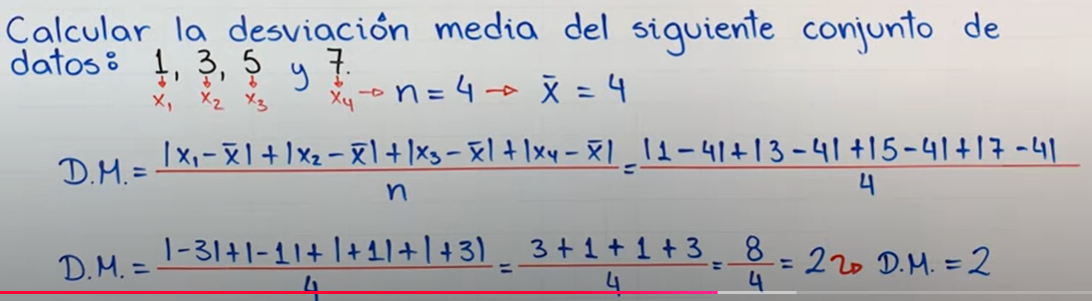 Calcular la desviación media del siguiente conjunto de
datos: 1, 3, 5 y 7.
x₁ x₂ x₃ x₄ → n = 4 → x̄ = 4
D.M. = |x₁ - x̄| + |x₂ - x̄| + |x₃ - x̄| + |x₄ - x̄| / n = |1 - 4| + |3 - 4| + |5 - 4| + |7 - 4| / 4
D.M. = |-3| + |-1| + |+1| + |+3| / 4 = 3 + 1 + 1 + 3 / 4 = 8 / 4 = 2 → D.M. = 2